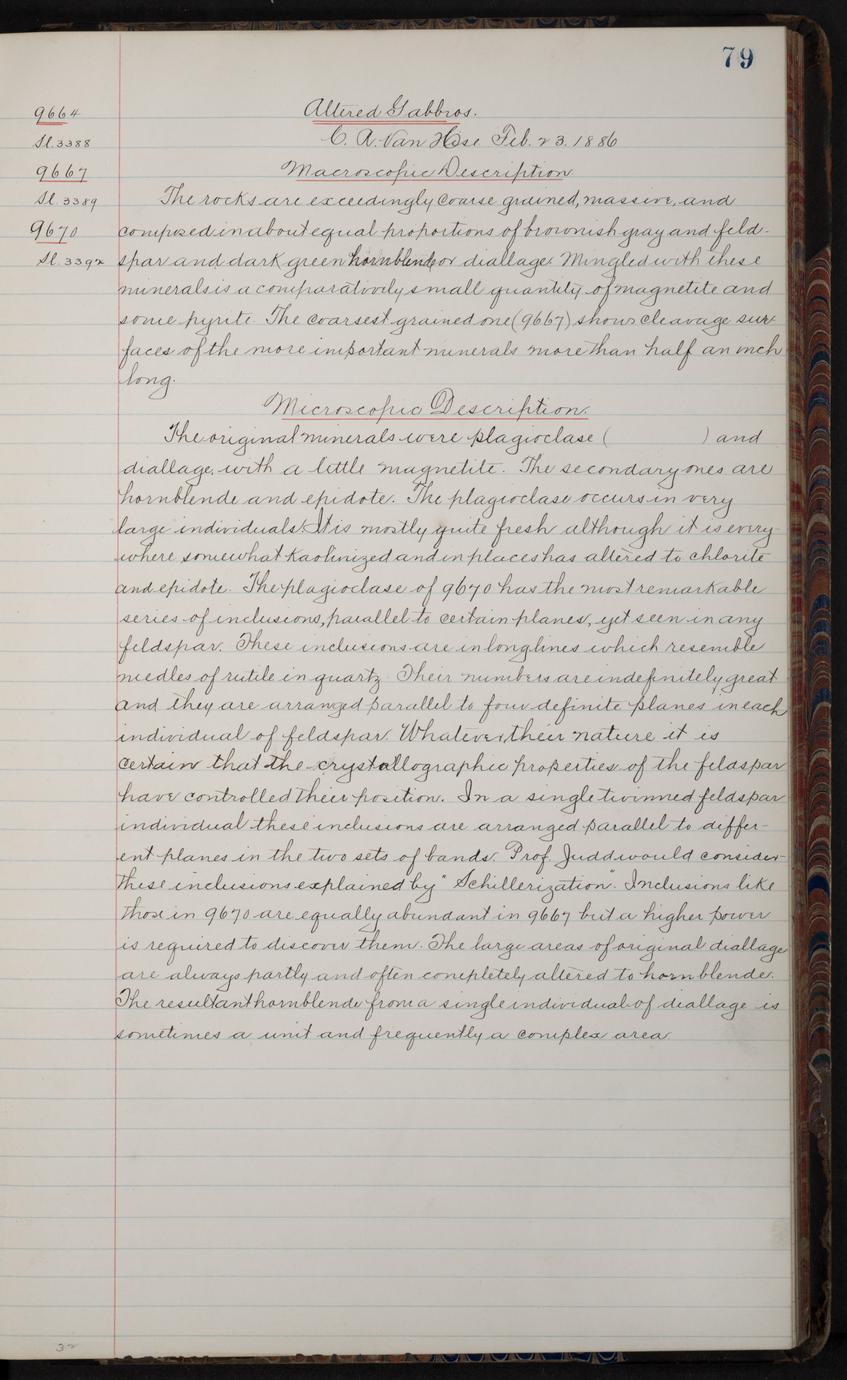 79
Altered Gabbros.
9664
C. R. Van Hise Feb. 23. 1886
Sl. 3388
Macroscopic Description
9667
The rocks are exceedingly coarse grained, massive, and
Sl. 3389
composed in about equal proportions of brownish gray and feld-
9670
spar and dark green hornblende or diallage. Mingled with these
Sl. 3392
minerals is a comparatively small quantity of magnetite and
some pyrite. The coarsest grained one (9667) shows cleavage sur-
faces of the more important minerals more than half an inch
long.
Microscopic Description.
The original minerals were plagioclase ( ) and
diallage, with a little magnetite. The secondary ones are
hornblende and epidote. The plagioclase occurs in very
large individuals. It is mostly quite fresh although it is every-
where somewhat kaolinized and in places has altered to chlorite
and epidote. The plagioclase of 9670 has the most remarkable
series of inclusions, parallel to certain planes, yet seen in any
feldspar. These inclusions are in long lines which resemble
needles of rutile in quartz. Their numbers are indefinitely great
and they are arranged parallel to four definite planes in each
individual of feldspar. Whatever their nature it is
certain that the crystallographic properties of the feldspar
have controlled their position. In a single twinned feldspar
individual these inclusions are arranged parallel to differ-
ent planes in the two sets of bands. Prof. Judd would consider
these inclusions explained by "Schillerization". Inclusions like
those in 9670 are equally abundant in 9667 but a higher power
is required to discover them. The large areas of original diallage
are always partly and often completely altered to hornblende.
The resultant hornblende from a single individual of diallage is
sometimes a unit and frequently a complex area
32